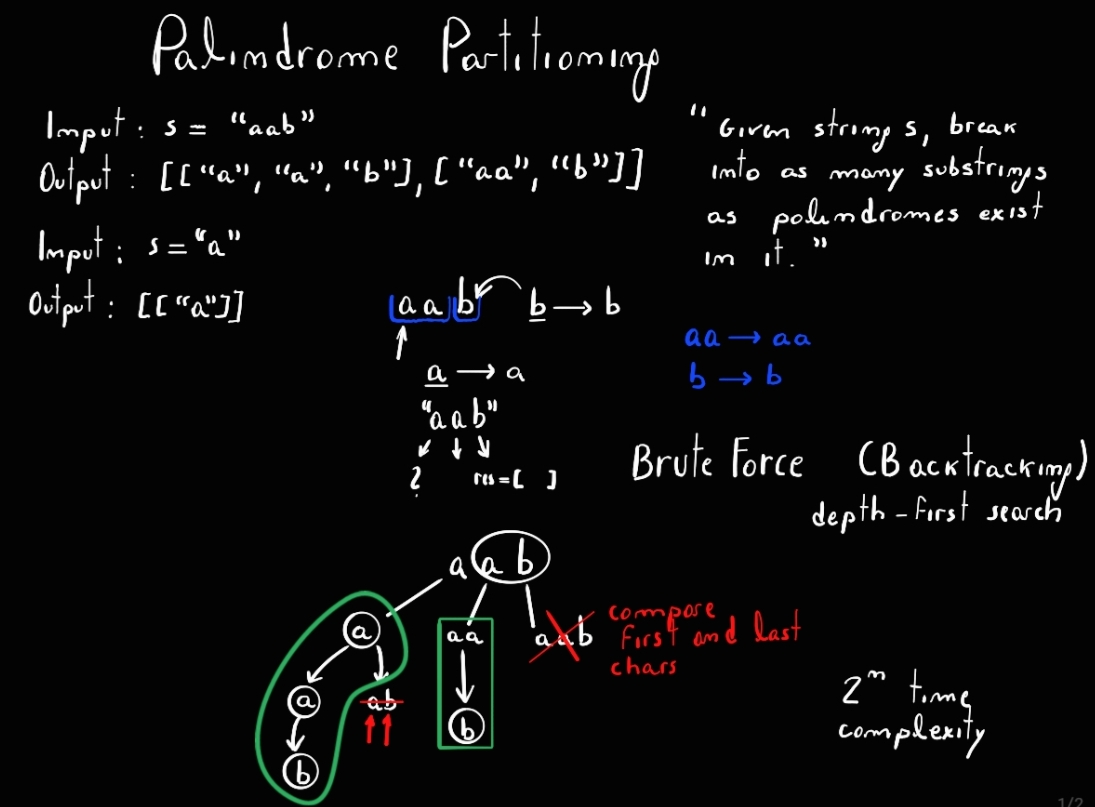 Palindrome Partitioning
Input : s = "aab"
Output : [["a", "a", "b"], ["aa", "b"]]
Input : s = "a"
Output : [["a"]]
"Given string s, break
into as many substrings
as palindromes exist
in it."
aab b → b
a → a
"aab"
? res = [ ]
aa → aa
b → b
Brute Force (Backtracking)
depth-first search
a a b
a aa aab
compare
first and last
chars
a ab b
b
2ⁿ time
complexity
1/2